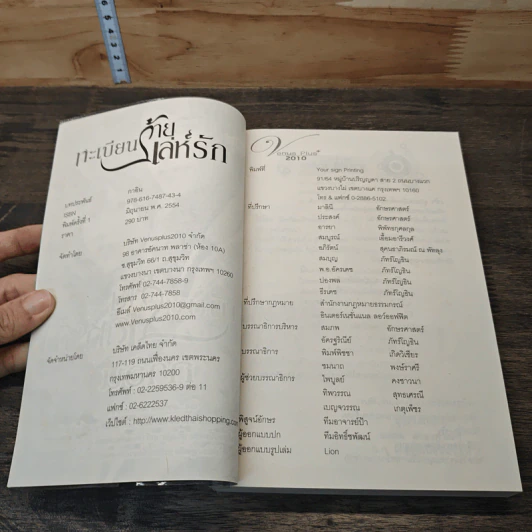 ทะเบียนร้ายเล่ห์รัก
บทประพันธ์ กาธิน
ISBN 978-616-7487-43-4
พิมพ์ครั้งที่ 1 มิถุนายน พ.ศ. 2554
ราคา 290 บาท
จัดทำโดย บริษัท Venusplus2010 จำกัด
98 อาคารซัคนาท พลาซ่า (ห้อง 10A)
ซ.สุขุมวิท 66/1 ถ.สุขุมวิท
แขวงบางนา เขตบางนา กรุงเทพฯ 10260
โทรศัพท์ 02-744-7858-9
โทรสาร 02-744-7858
อีเมล์ Venusplus2010@gmail.com
www.Venusplus2010.com
จัดจำหน่ายโดย บริษัท เคล็ดไทย จำกัด
117-119 ถนนเฟื่องนคร เขตพระนคร
กรุงเทพมหานคร 10200
โทรศัพท์ : 02-2259536-9 ต่อ 11
แฟกซ์ : 02-6222537
เว็ปไซต์ : http://www.kledthaishopping.com
Venus Plus
2010
พิมพ์ที่ Your sign Printing
หมู่บ้านปริญญดา สาย 2 ถนนบางแวก
แขวงบางไผ่ เขตบางแค กรุงเทพฯ 10160
โทร & แฟกซ์ 0-2886-5102
ที่ปรึกษา มาลินี อักษรศาสตร์
ประสงค์ อักษรศาสตร์
อารยา พิพัทธกุศลกุล
สมบูรณ์ เอื้ออารีวงศ์
อภิรัตน์
สมบุญ ภัทร์โญธิน
พ.อ.อัครเดช ภัทร์โญธิน
ปองพล ภัทร์โญธิน
ธีรเดช ภัทร์โญธิน
ที่ปรึกษากฎหมาย สำนักงานกฎหมายธรรมกรณ์
อินเตอร์เนชั่นแนล ลอว์ออฟฟิศ
บรรณาธิการบริหาร สมภพ อักษรศาสตร์
อัครฐวิณีย์ ภัทร์โญธิน
บรรณาธิการ พิมพ์พิชชา เกิดวิเชียร
ชมนาถ พงษ์ราศรี
ผู้ช่วยบรรณาธิการ ไพบูลย์ คงชาวนา
ทิพวรรณ สุทธเศรณี
เบญจวรรณ เกตุเพ็ชร
พิสูจน์อักษร ทีมอาจารย์ป้า
ผู้ออกแบบปก ทีมอิทธิ์ชพัฒน์
ผู้ออกแบบรูปเล่ม Lion